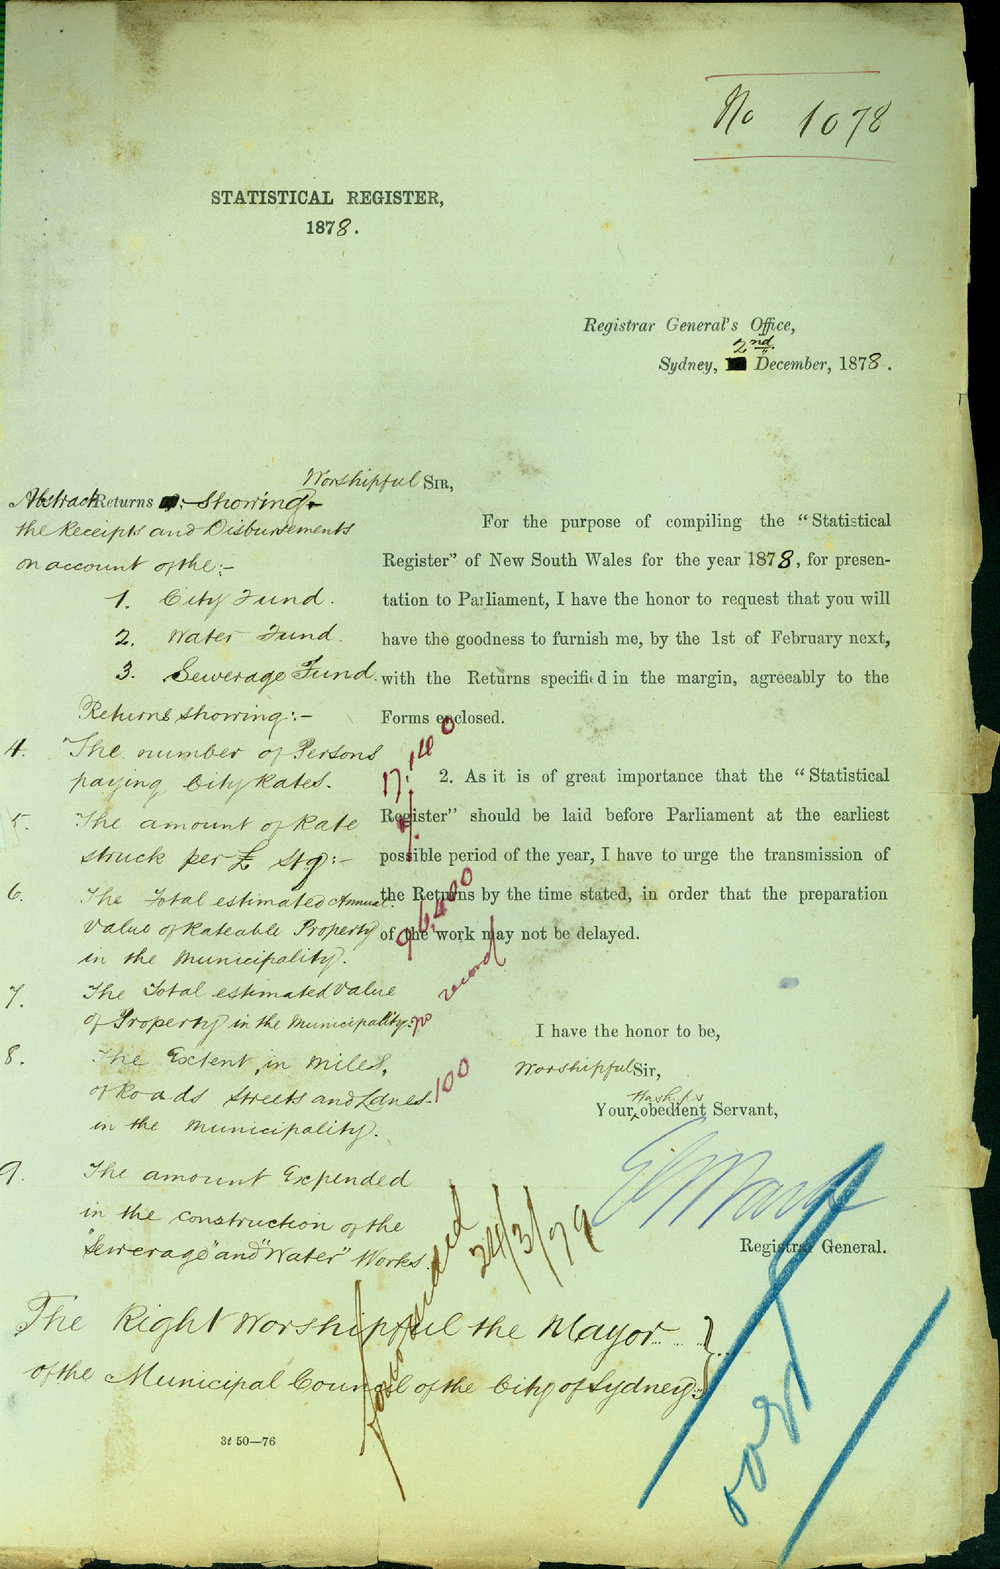 No 1078
STATISTICAL REGISTER,
1878.
Registrar General's Office,
2nd.
Sydney, December, 1878.
Worshipful SIR,
Abstract Returns :- Showing
the Receipts and Disbursements
on account of the :-
1. City Fund.
2. Water Fund.
3. Sewerage Fund.
Returns showing :-
4. The number of Persons
paying City Rates.
5. The amount of Rate
struck per £ stg :-
6. The Total estimated Annual
Value of Rateable Property
in the Municipality.
7. The Total estimated Value
of Property in the Municipality.
8. The Extent, in Miles,
of Roads Streets and Lanes
in the Municipality.
9. The amount Expended
in the construction of the
"Sewerage" and "Water" Works.
17,140
96,400
no record
100
For the purpose of compiling the "Statistical
Register" of New South Wales for the year 1878, for presen-
tation to Parliament, I have the honor to request that you will
have the goodness to furnish me, by the 1st of February next,
with the Returns specified in the margin, agreeably to the
Forms enclosed.
2. As it is of great importance that the "Statistical
Register" should be laid before Parliament at the earliest
possible period of the year, I have to urge the transmission of
the Returns by the time stated, in order that the preparation
of the work may not be delayed.
I have the honor to be,
Worshipful Sir,
Your Worship's obedient Servant,
Registrar General.
forwarded 24/3/79
The Right Worshipful the Mayor
of the Municipal Council of the City of Sydney.
3t 50—76